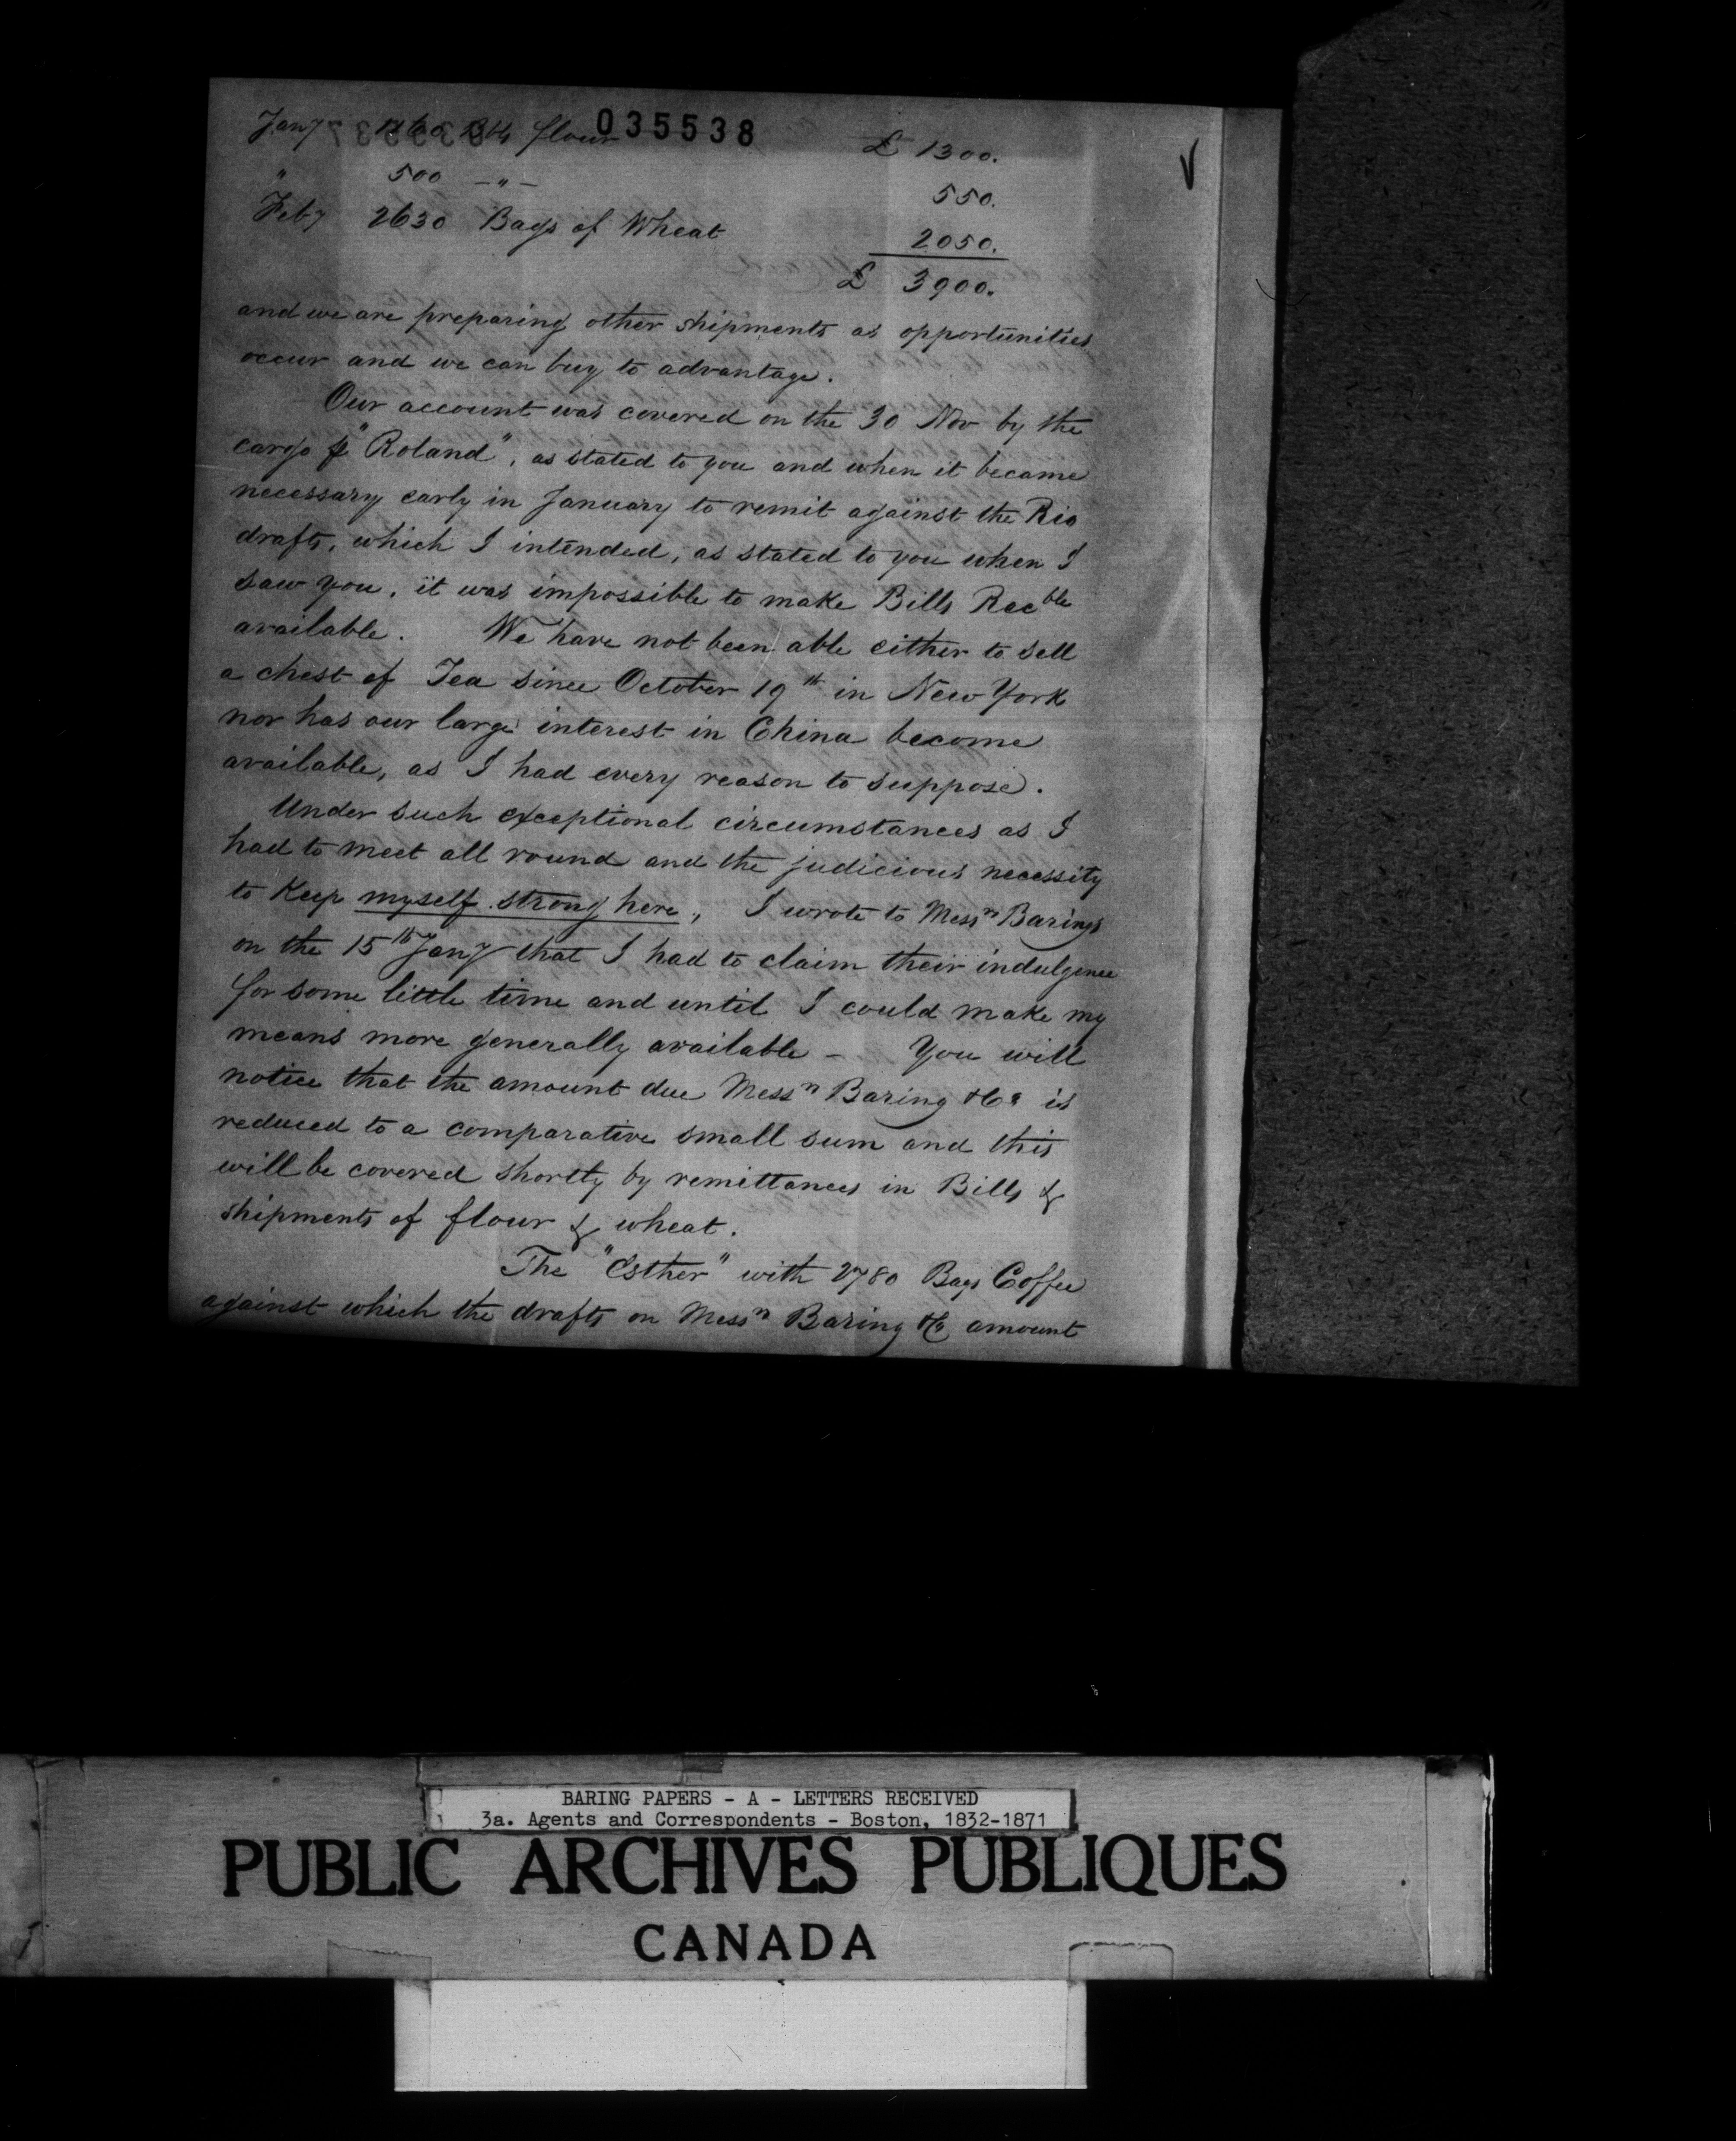 035538
Jany 1160 Bbls flour £ 1300.
" 500 –"– 550.
Feby 2630 Bags of Wheat 2050.
£ 3900.
and we are preparing other shipments as opportunities
occur and we can buy to advantage.
Our account was covered on the 30 Nov by the
cargo p "Roland", as stated to you and when it became
necessary early in January to remit against the Rio
drafts, which I intended, as stated to you when I
saw you, it was impossible to make Bills Recble
available. We have not been able either to sell
a chest of Tea since October 19th in New York
nor has our large interest in China become
available, as I had every reason to suppose.
Under such exceptional circumstances as I
had to meet all round and the judicious necessity
to Keep myself strong here, I wrote to Messrs Barings
on the 15th Jany that I had to claim their indulgence
for some little time and until I could make my
means more generally available – You will
notice that the amount due Messrs Baring &Co is
reduced to a comparative small sum and this
will be covered shortly by remittances in Bills &
shipments of flour & wheat.
The "Esther" with 2780 Bags Coffee
against which the drafts on Messrs Baring &Co amount
BARING PAPERS - A - LETTERS RECEIVED
3a. Agents and Correspondents - Boston, 1832-1871
PUBLIC ARCHIVES PUBLIQUES
CANADA